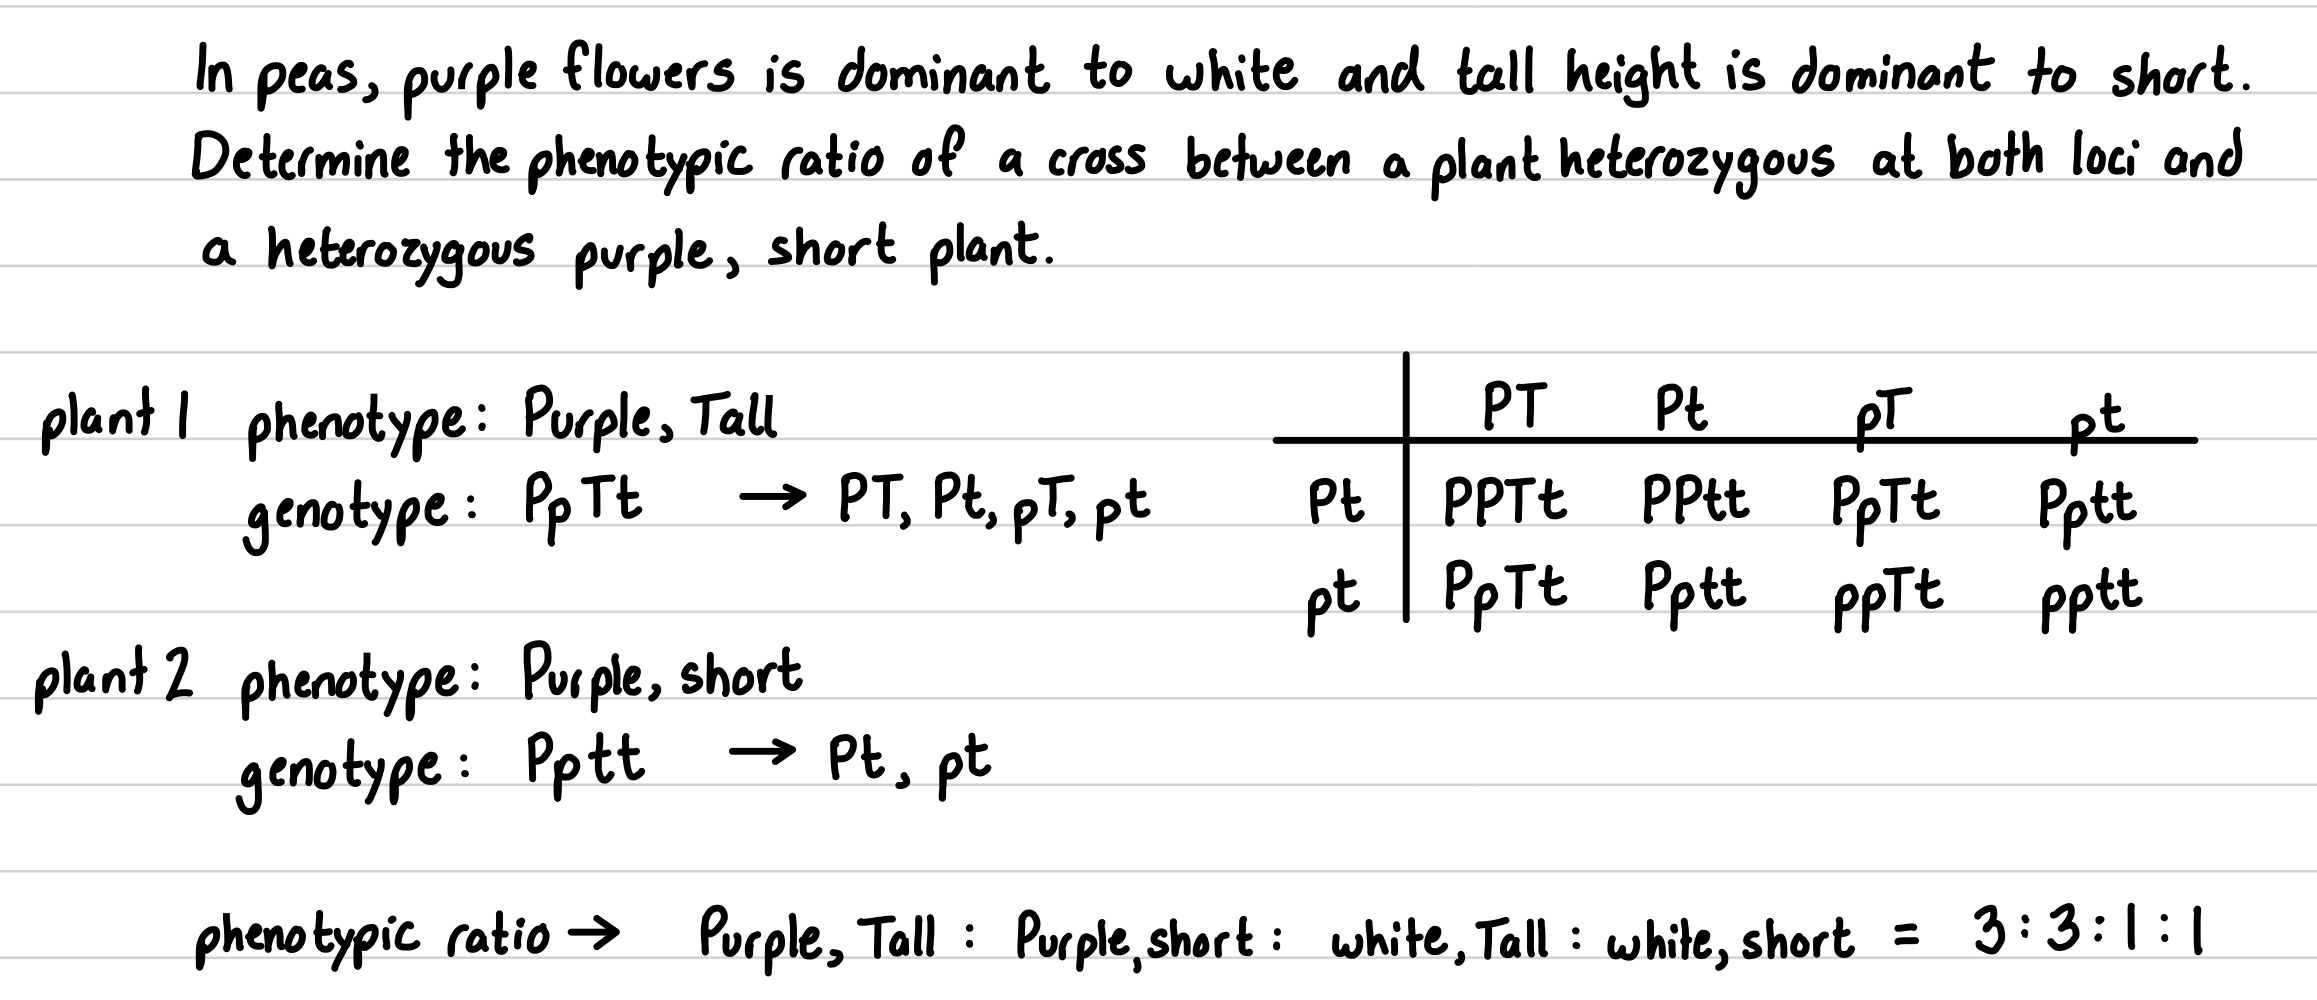 In peas, purple flowers is dominant to white and tall height is dominant to short.
Determine the phenotypic ratio of a cross between a plant heterozygous at both loci and
a heterozygous purple, short plant.
plant 1 phenotype: Purple, Tall
genotype: PpTt → PT, Pt, pT, pt
plant 2 phenotype: Purple, short
genotype: Pptt → Pt, pt
PT Pt pT pt
Pt PPTt PPtt PpTt Pptt
pt PpTt Pptt ppTt pptt
phenotypic ratio → Purple, Tall : Purple, short : white, Tall : white, short = 3:3:1:1